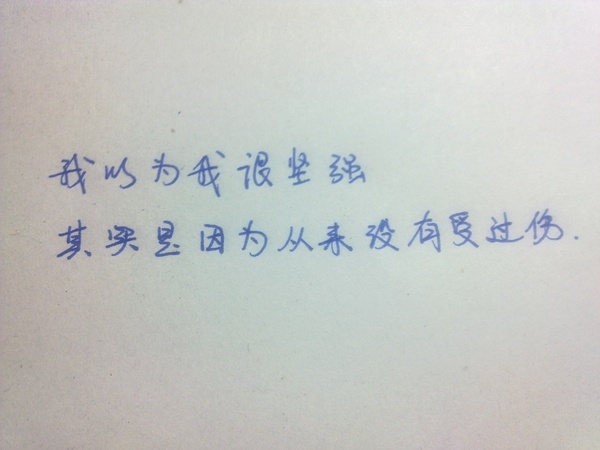 我以为我很坚强
其实是因为从来没有受过伤.